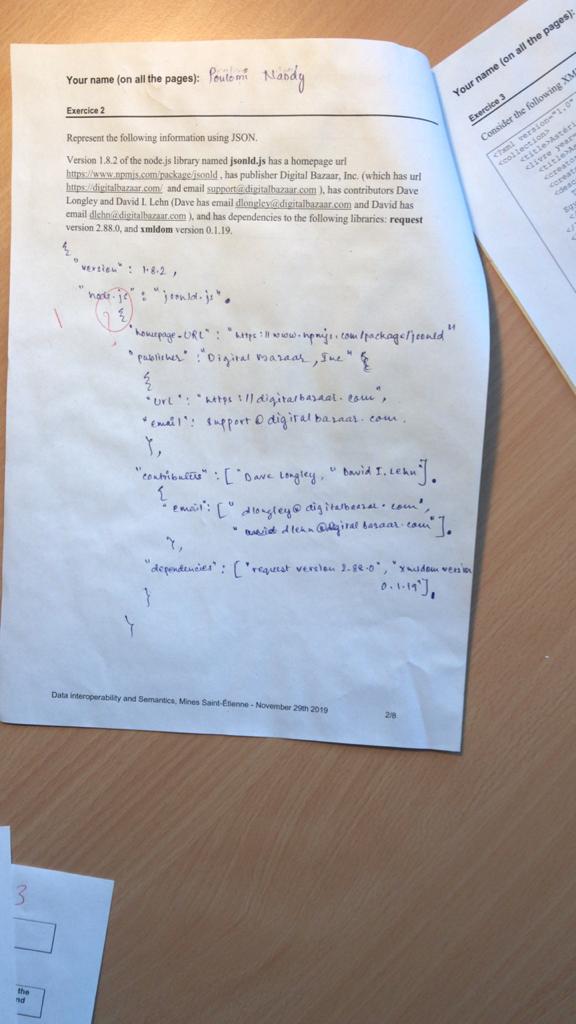 Your name (on all the pages): Poulomi Nandy
Exercice 2
Represent the following information using JSON.
Version 1.8.2 of the node.js library named jsonld.js has a homepage url
https://www.npmjs.com/package/jsonld , has publisher Digital Bazaar, Inc. (which has url
https://digitalbazaar.com/ and email support@digitalbazaar.com ), has contributors Dave
Longley and David I. Lehn (Dave has email dlongley@digitalbazaar.com and David has
email dlehn@digitalbazaar.com ), and has dependencies to the following libraries: request
version 2.88.0, and xmldom version 0.1.19.
{
"version" : 1.8.2 ,
"node.js" : "jsonld.js".
1 ? {
"homepage-URL" : "https://www.npmjs.com/package/jsonld"
"publisher" : "Digital Bazaar, Inc" {
{
"url" : "https://digitalbazaar.com",
"email" : support@digitalbazaar.com.
},
"contributers" : ["Dave Longley, " David I. Lehn"].
{
"email": [" dlongley@digitalbazaar.com",
" dlehn@digitalbazaar.com"].
},
"dependencies" : ["request version 2.88.0", "xmldom version
0.1.19"].
}
}
Data interoperability and Semantics, Mines Saint-Étienne - November 29th 2019
2/8
Your name (on all the pages):
Exercice 3
Consider the following XM
<?xml version="1.0"
<collection>
<title>Astéri
<livre year=
<title>As
<creato
<creat
<desc
3
the
nd